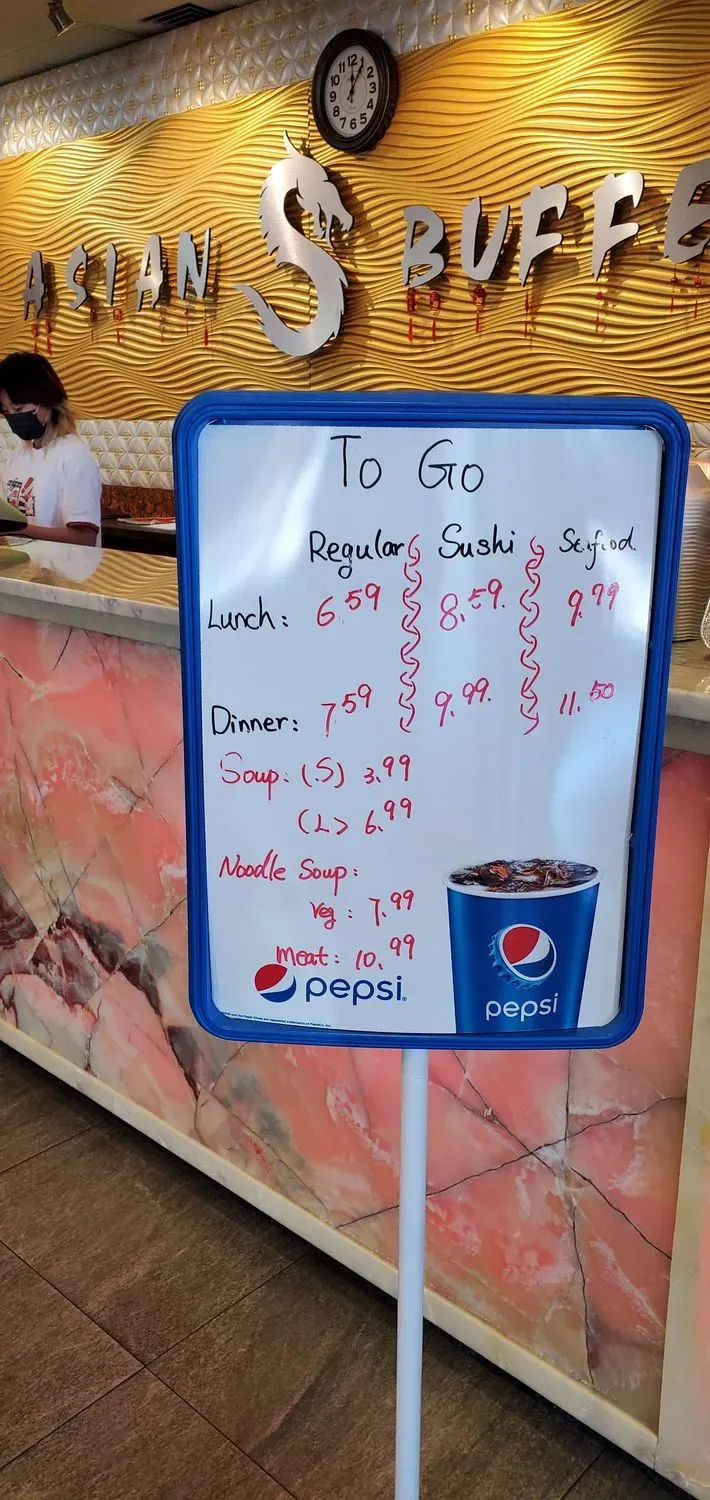 12
1
2
3
4
5
6
7
8
9
10
11
ASIAN BUFFE
To Go
Regular Sushi Seafood
Lunch: 6.59 8.59. 9.99
Dinner: 7.59 9.99. 11.50
Soup: (S) 3.99
(L) 6.99
Noodle Soup:
Veg: 7.99
Meat: 10.99
pepsi
pepsi